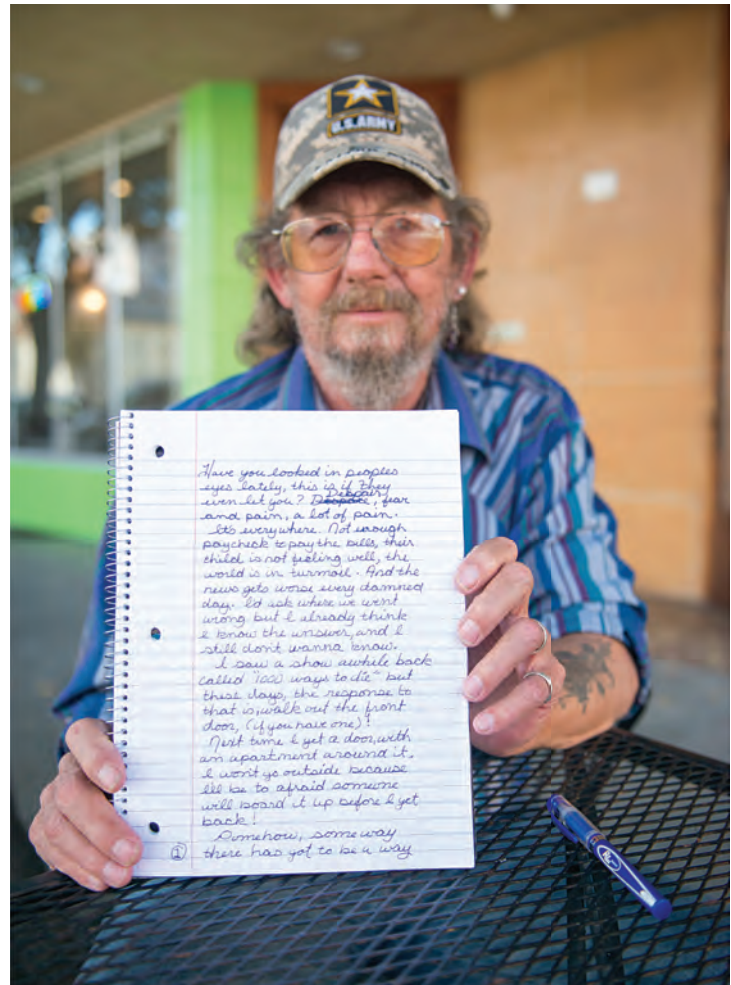 U.S. ARMY
Have you looked in peoples
eyes lately, this is if they
even let you? Despair, fear
and pain, a lot of pain.
Its everywhere. Not enough
paycheck to pay the bills, their
child is not feeling well, the
world is in turmoil. And the
news gets worse every damned
day. I'd ask where we went
wrong but I already think
I know the answer, and I
still don't wanna know.
I saw a show awhile back
called "1000 ways to die" but
these days, the response to
that is, walk out the front
door, (if you have one)!
Next time I get a door, with
an apartment around it,
I won't go outside because
I'll be to afraid someone
will board it up before I get
back!
Somehow, some way
there has got to be a way
1